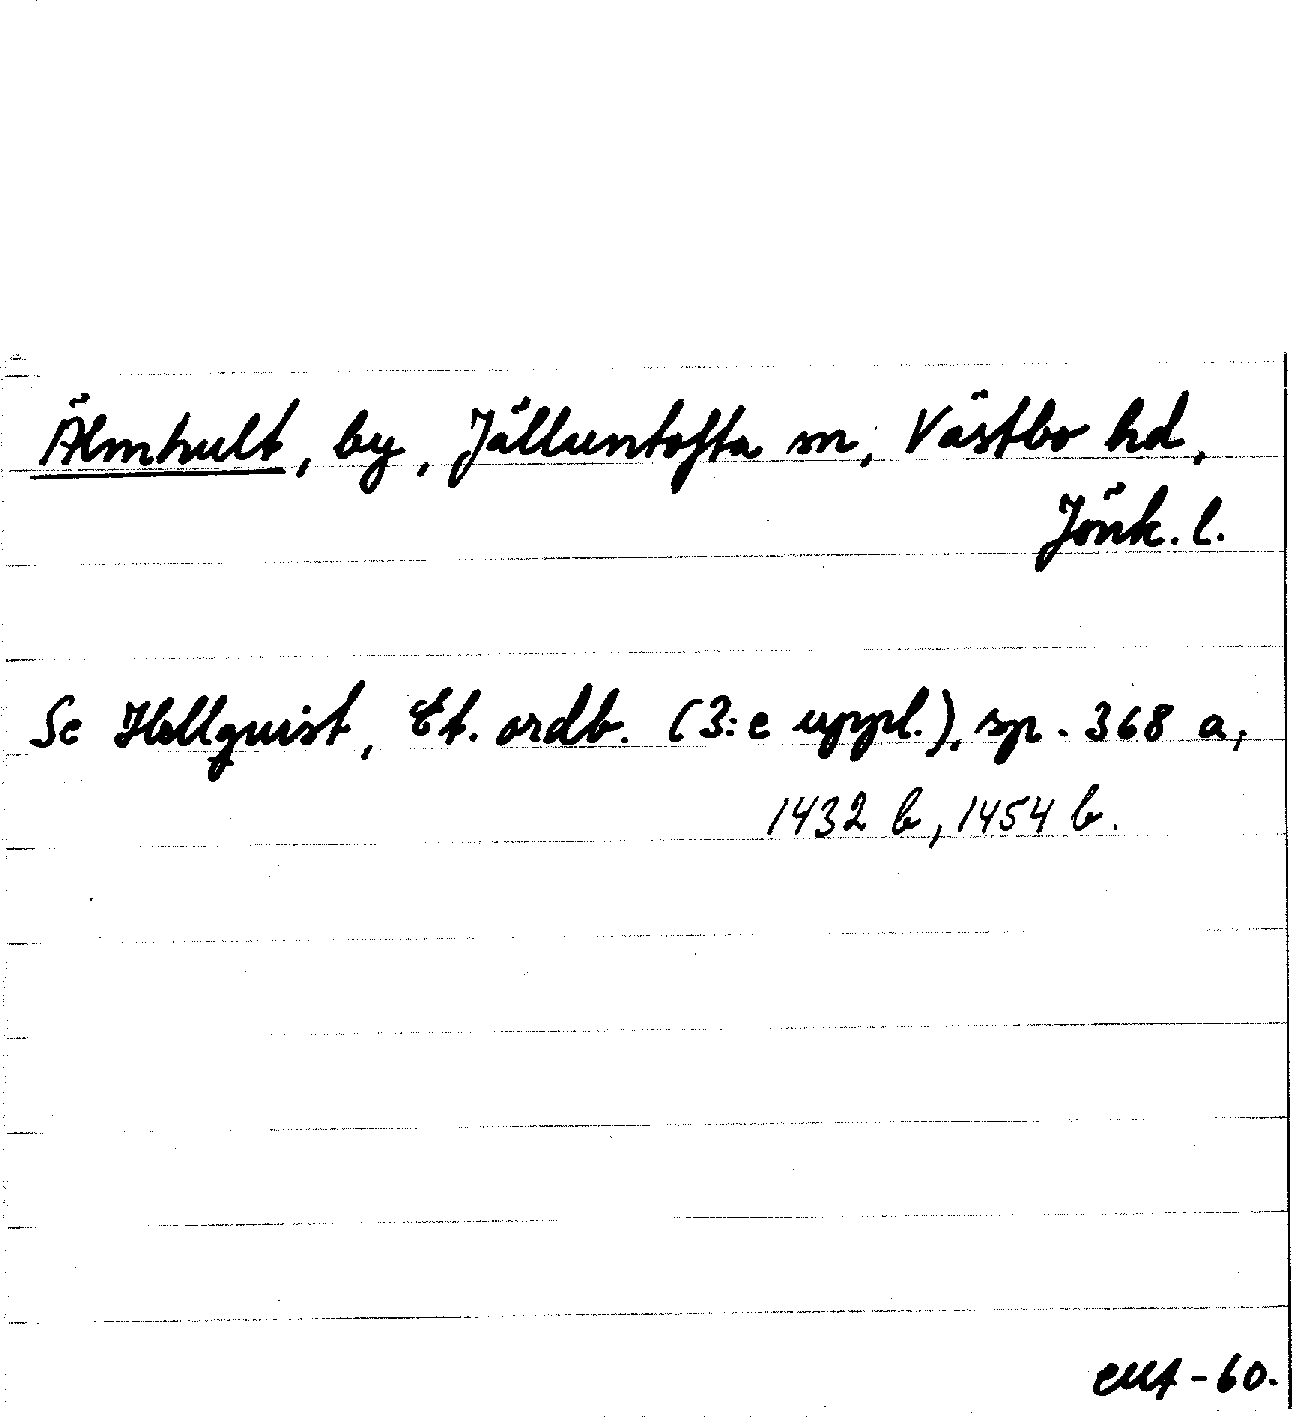 Älmhult, by, Jälluntofta sn, Västbo hd,
Jönk. l.
Se Hellquist, Et. ordb. (3:e uppl.), sp. 368 a,
1432 b, 1454 b.
-60.